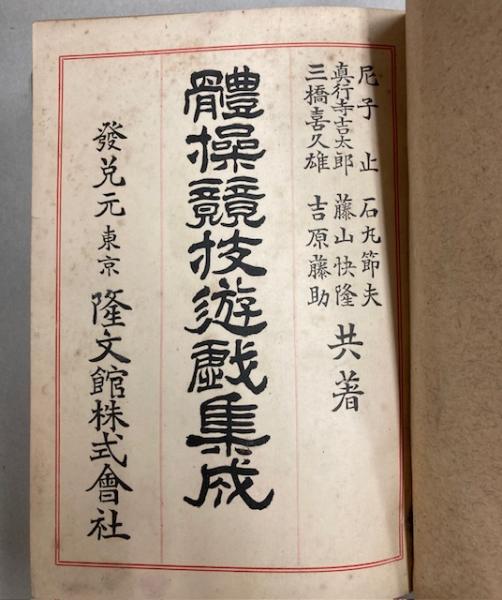 尼子止 石丸節夫
真行寺吉太郎 藤山快隆 共著
三橋喜久雄 吉原藤助
體操競技遊戲集成
發兌元 東京 隆文館株式會社